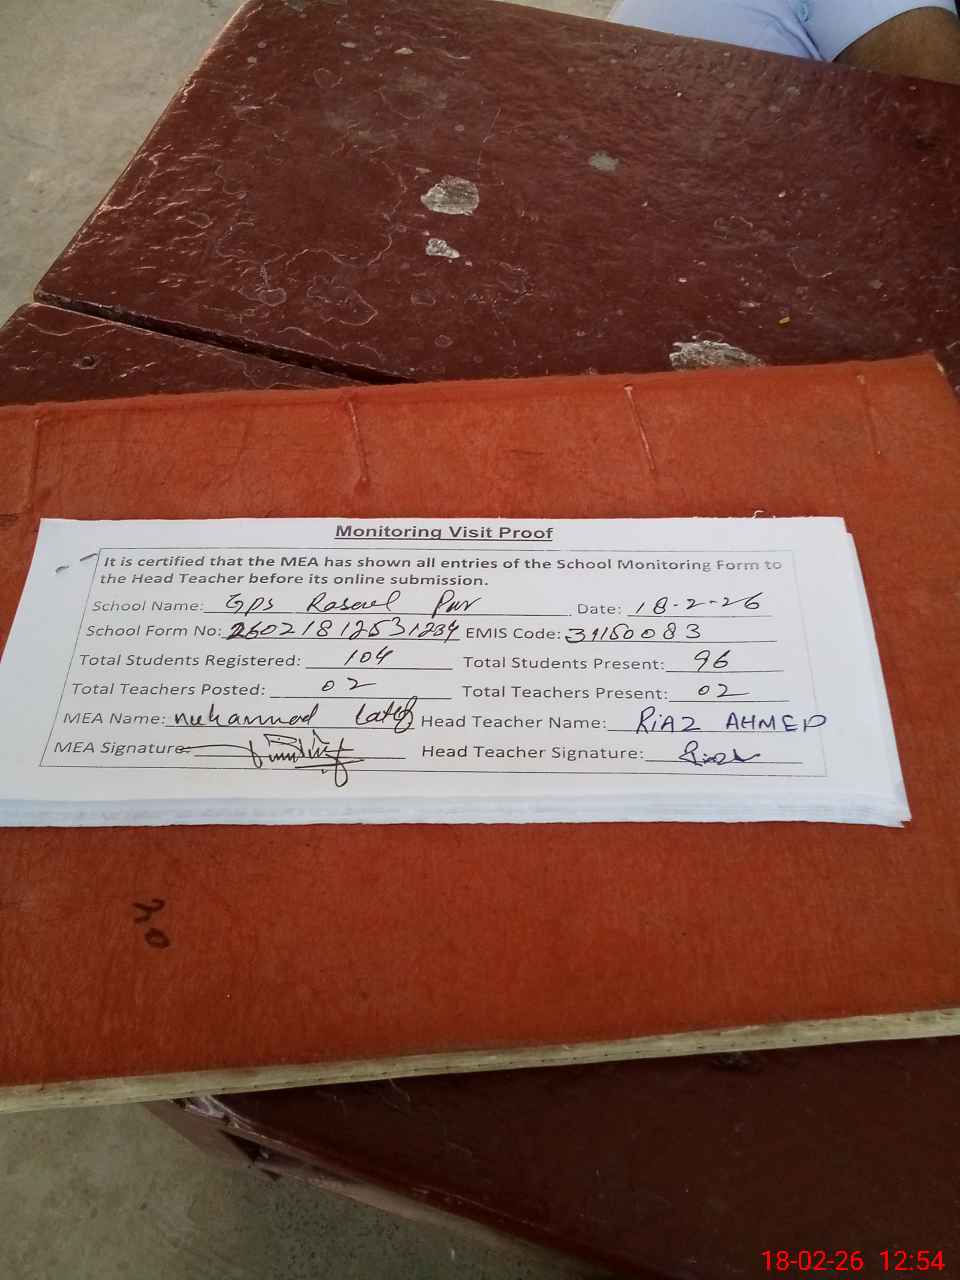 Monitoring Visit Proof
It is certified that the MEA has shown all entries of the School Monitoring Form to
the Head Teacher before its online submission.
School Name: GPS Rasool Pur Date: 18-2-26
School Form No: 26021812531234 EMIS Code: 31150083
Total Students Registered: 104 Total Students Present: 96
Total Teachers Posted: 02 Total Teachers Present: 02
MEA Name: Muhammad Latif Head Teacher Name: RIAZ AHMED
MEA Signature: Head Teacher Signature: Riaz
18-02-26 12:54